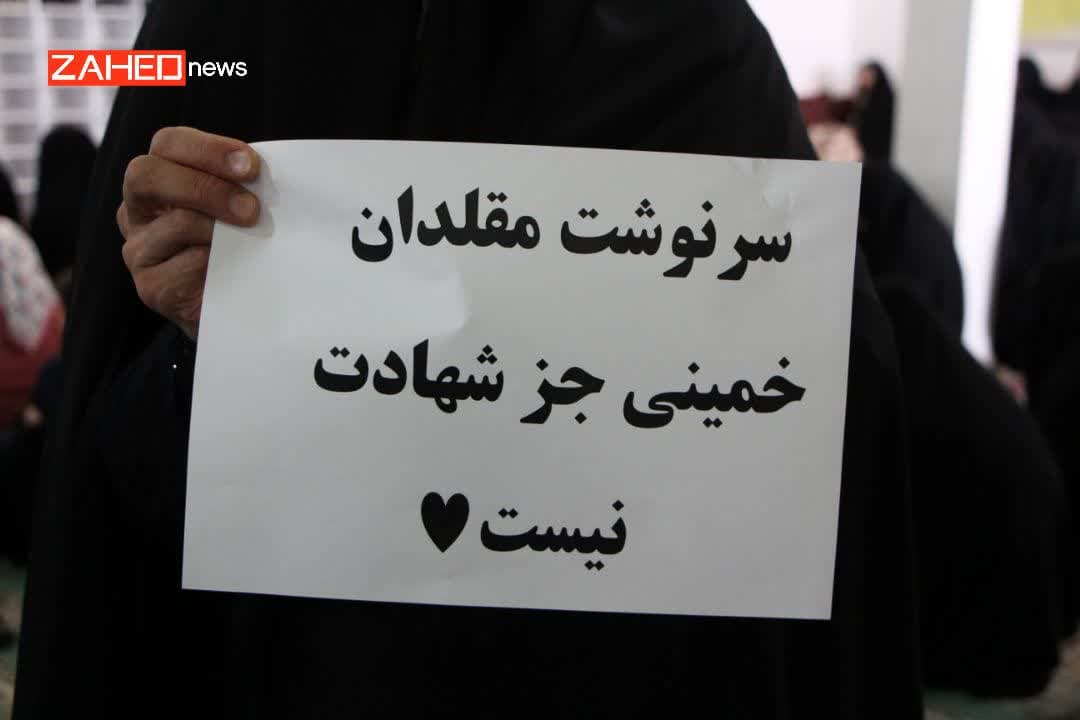 ZAHED news
سرنوشت مقلدان
خمینی جز شهادت
نیست♥